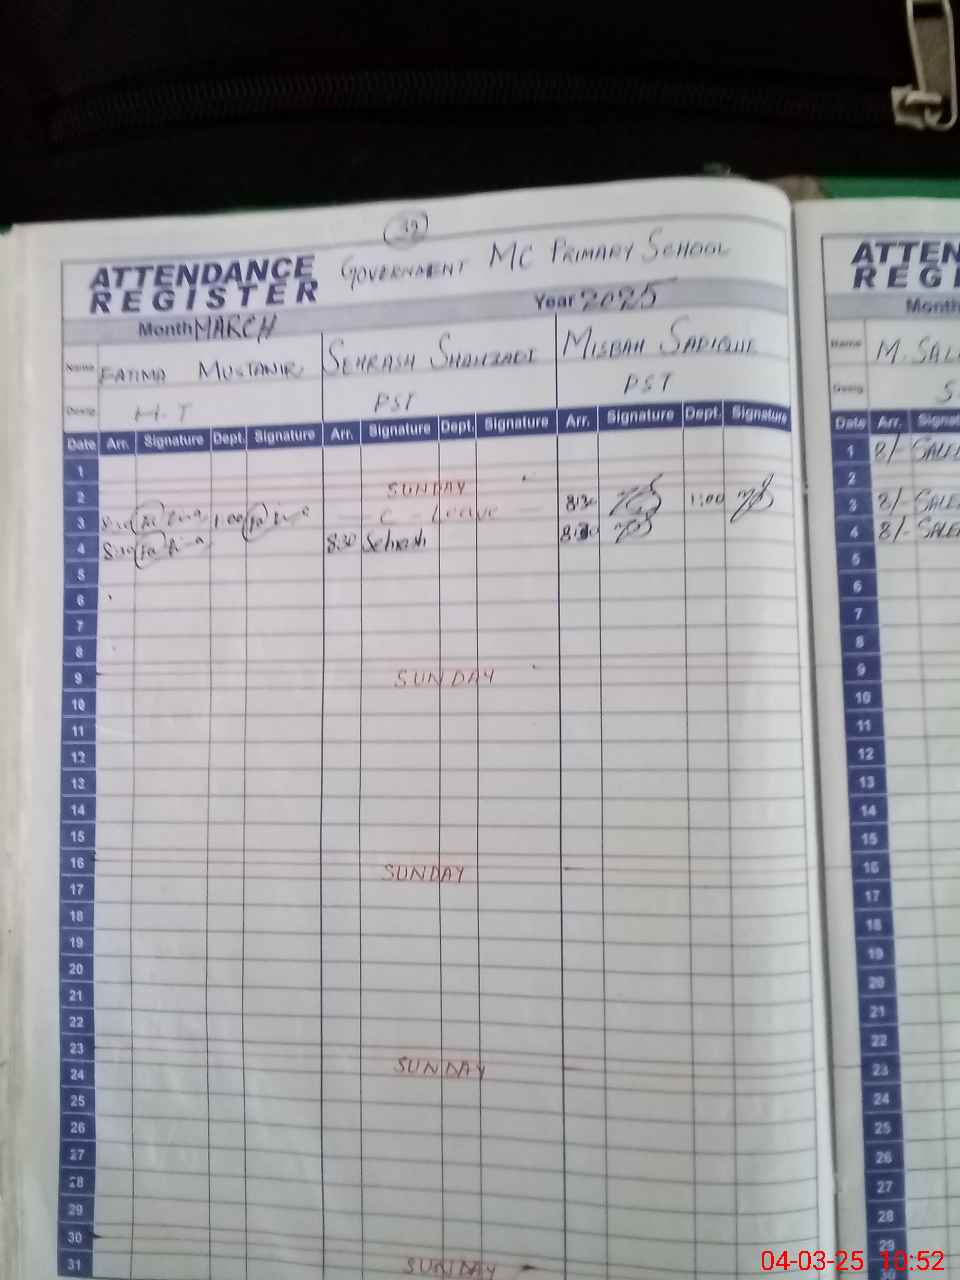 39
ATTENDANCE REGISTER GOVERNMENT MC PRIMARY SCHOOL
Month MARCH Year 2025
Name FATIMA MUSTANIR SEHRASH SHAHZADI MISBAH SADIQUE
Desig. H.T PST PST
Date Arr. Signature Dept. Signature Arr. Signature Dept. Signature Arr. Signature Dept. Signature
1
2 SUNDAY
3 8:30 Fatima 1:00 Fatima C - Leave 8:30 1:00
4 8:30 Fatima 8:30 Sehrash 8:30
5
6
7
8
9 SUNDAY
10
11
12
13
14
15
16 SUNDAY
17
18
19
20
21
22
23
24 SUNDAY
25
26
27
28
29
30
31 SUNDAY
ATTEN
REGI
Month
Name M. SAL
Desig. S
Date Arr. Signat
1 8/- SALE
2
3 8/- SALE
4 8/- SALE
5
6
7
8
9
10
11
12
13
14
15
16
17
18
19
20
21
22
23
24
25
26
27
28
29
30
04-03-25 10:52